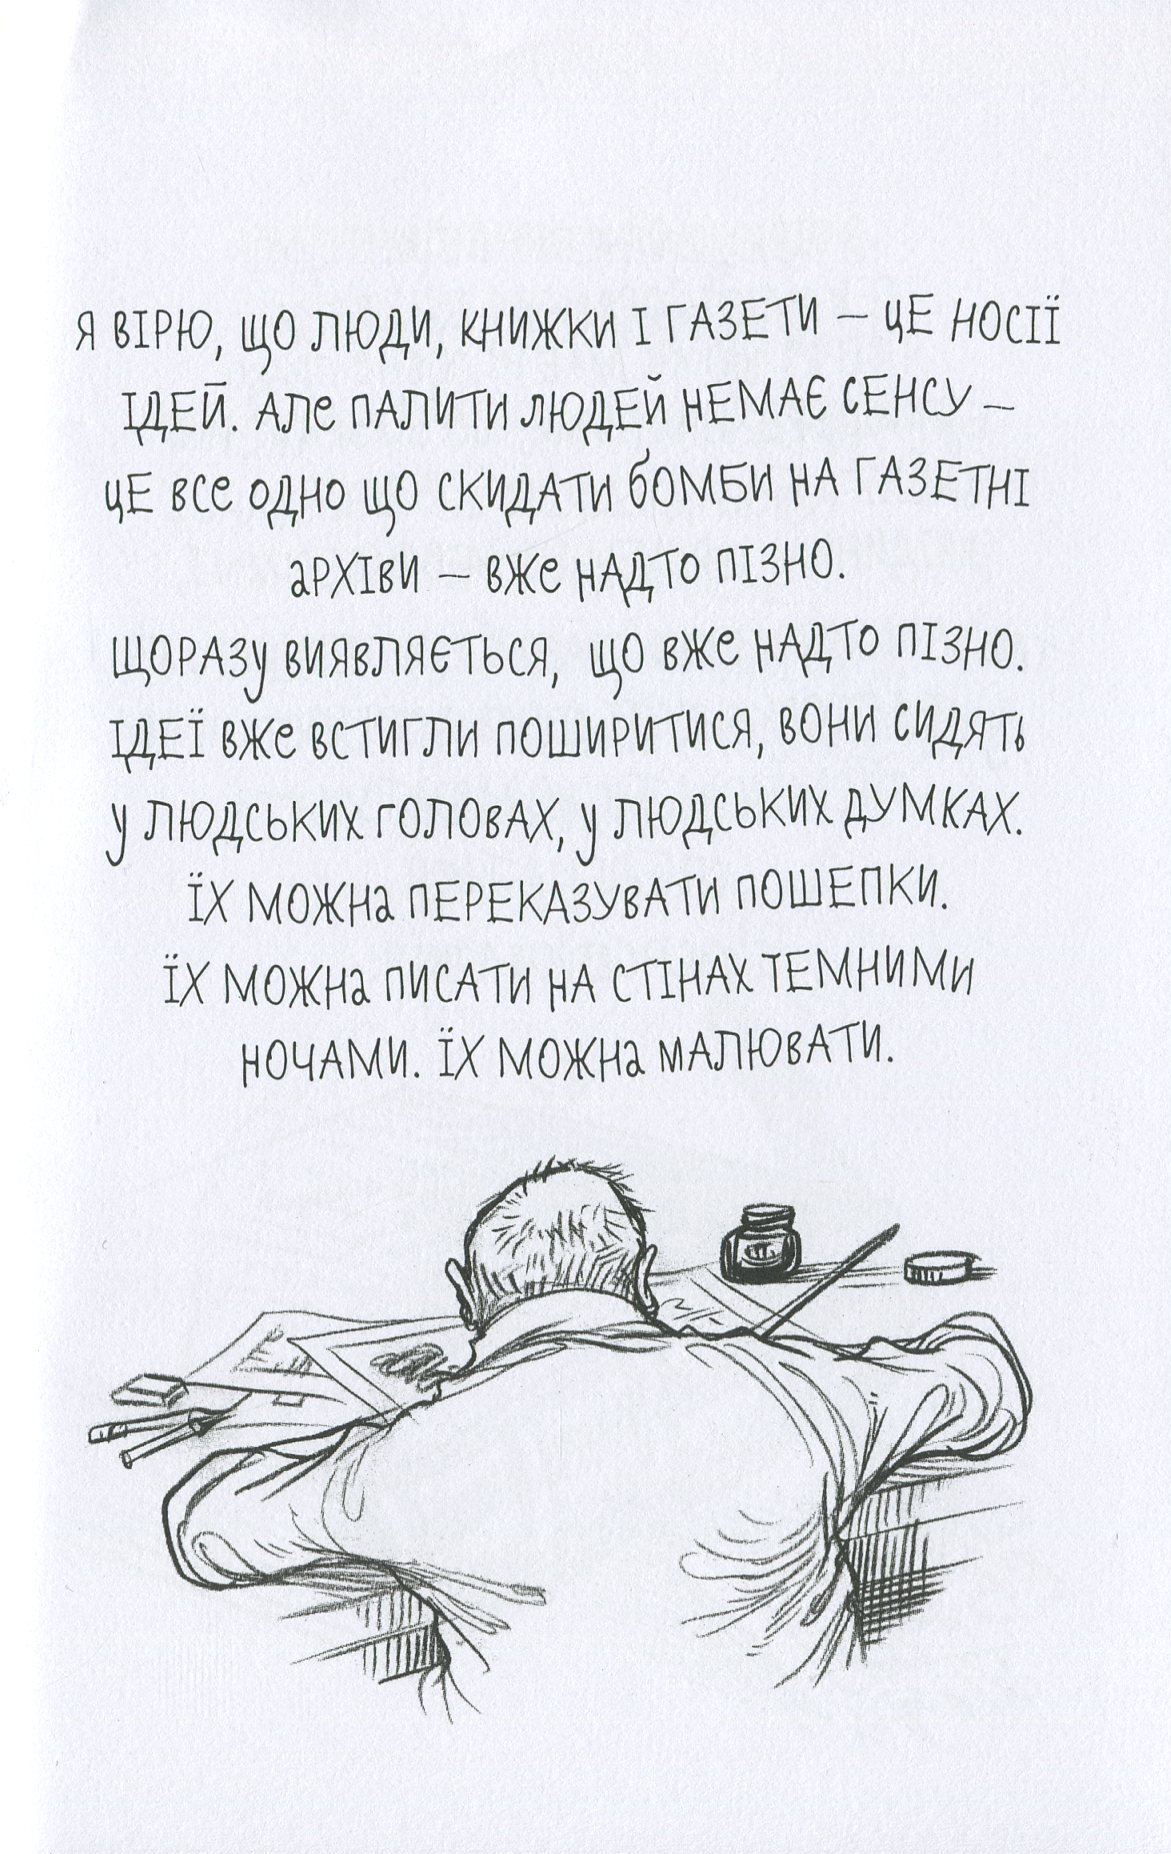 Я ВІРЮ, ЩО ЛЮДИ, КНИЖКИ І ГАЗЕТИ – ЦЕ НОСІЇ
ІДЕЙ. АЛЕ ПАЛИТИ ЛЮДЕЙ НЕМАЄ СЕНСУ –
ЦЕ ВСЕ ОДНО ЩО СКИДАТИ БОМБИ НА ГАЗЕТНІ
АРХІВИ – ВЖЕ НАДТО ПІЗНО.
ЩОРАЗУ ВИЯВЛЯЄТЬСЯ, ЩО ВЖЕ НАДТО ПІЗНО.
ІДЕЇ ВЖЕ ВСТИГЛИ ПОШИРИТИСЯ, ВОНИ СИДЯТЬ
У ЛЮДСЬКИХ ГОЛОВАХ, У ЛЮДСЬКИХ ДУМКАХ.
ЇХ МОЖНА ПЕРЕКАЗУВАТИ ПОШЕПКИ.
ЇХ МОЖНА ПИСАТИ НА СТІНАХ ТЕМНИМИ
НОЧАМИ. ЇХ МОЖНА МАЛЮВАТИ.